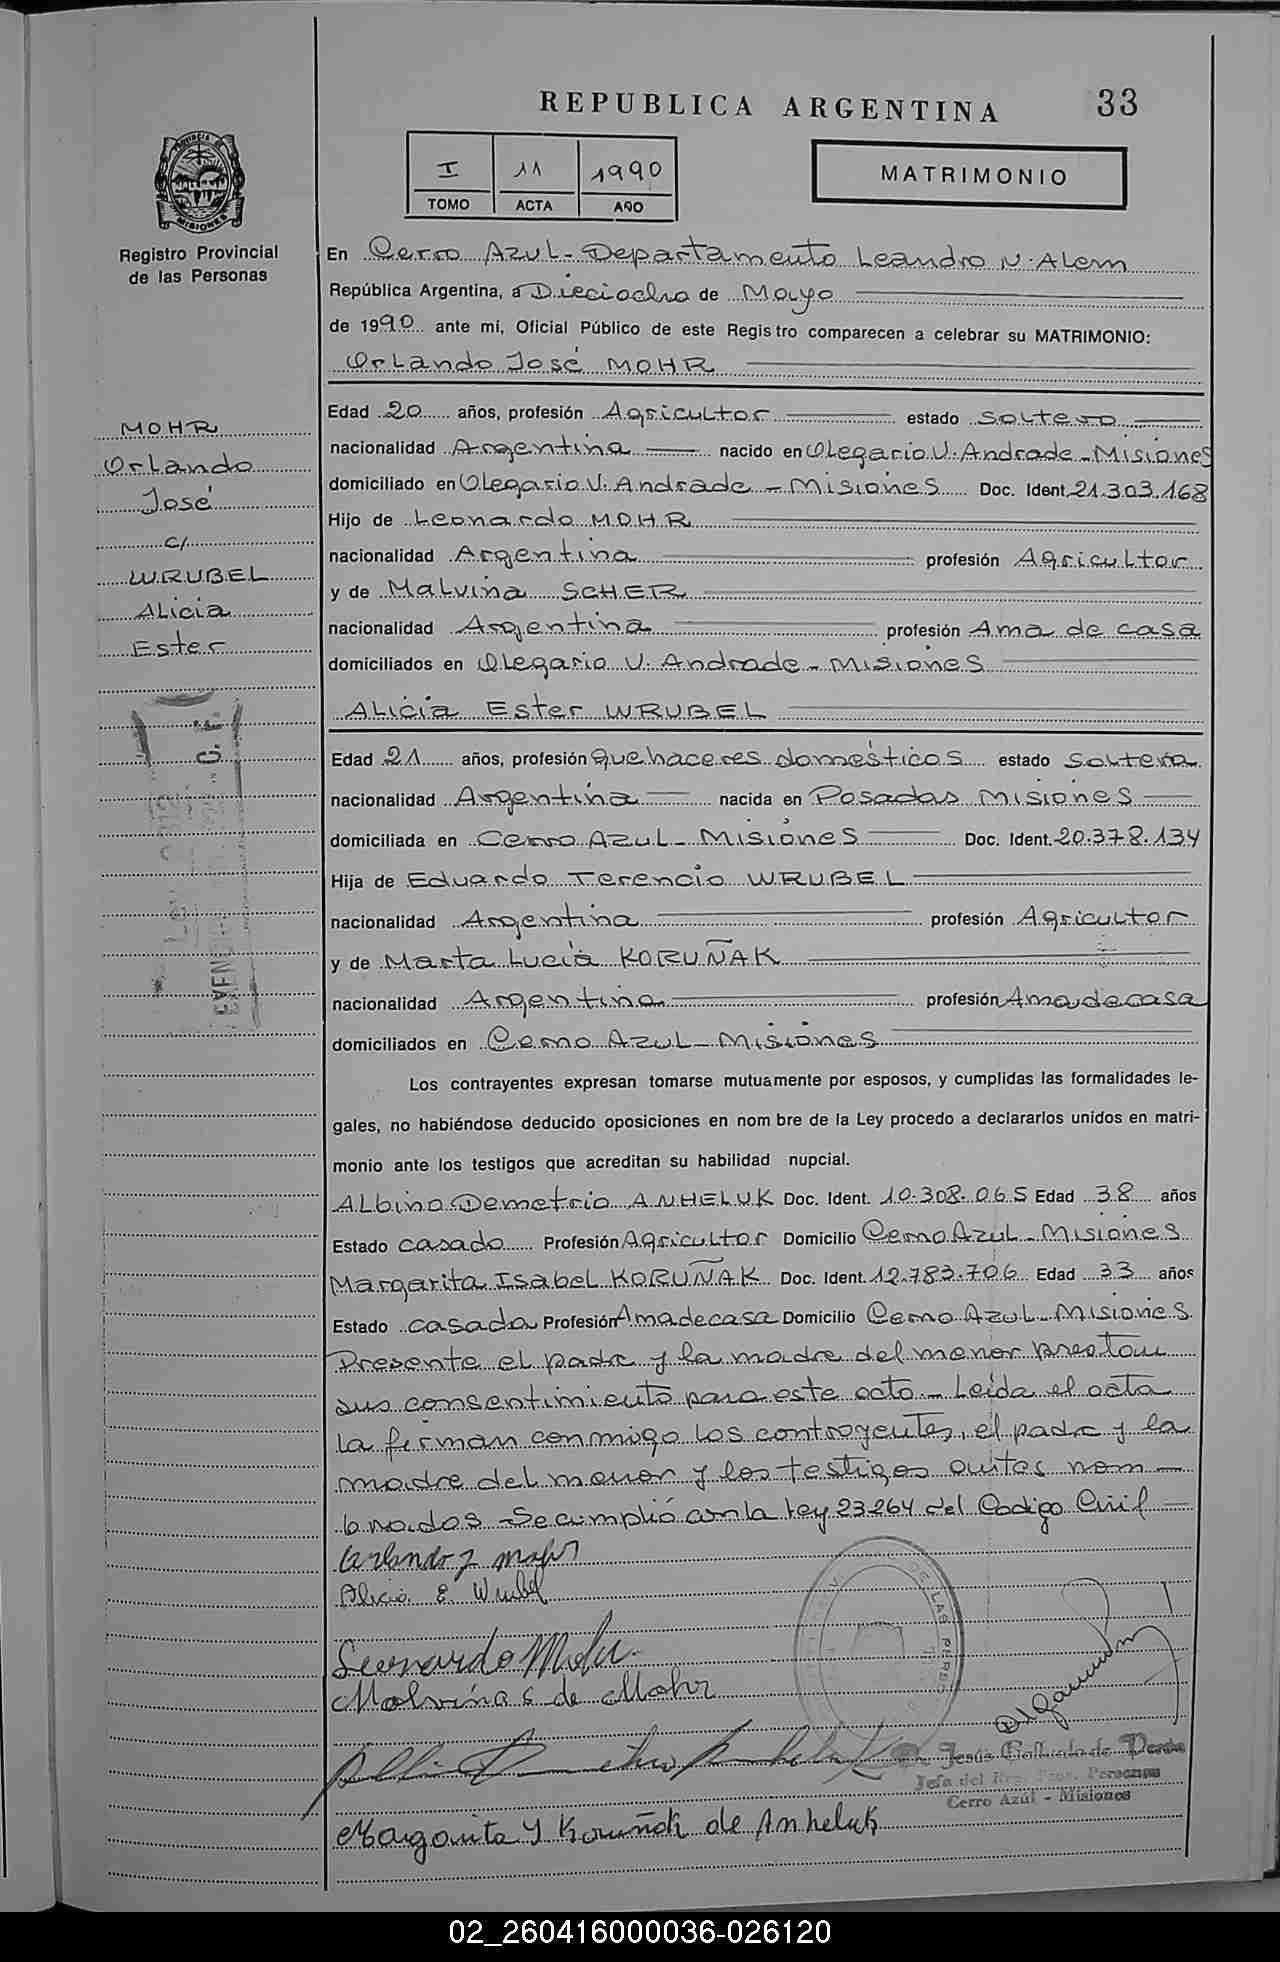 REPUBLICA ARGENTINA 33
PROVINCIA DE MISIONES
Registro Provincial
de las Personas
I 11 1990
TOMO ACTA AÑO
MATRIMONIO
MOHR
Orlando
José
c/
WRUBEL
Alicia
Ester
En Cerro Azul - Departamento Leandro N. Alem
República Argentina, a Dieciocho de Mayo
de 1990 ante mi, Oficial Público de este Registro comparecen a celebrar su MATRIMONIO:
Orlando José MOHR
Edad 20 años, profesión Agricultor estado soltero
nacionalidad Argentina nacido en Olegario V. Andrade - Misiones
domiciliado en Olegario V. Andrade - Misiones Doc. Ident. 21.303.168
Hijo de Leonardo MOHR
nacionalidad Argentina profesión Agricultor
y de Malvina SCHER
nacionalidad Argentina profesión Ama de casa
domiciliados en Olegario V. Andrade - Misiones
Alicia Ester WRUBEL
Edad 21 años, profesión quehaceres domésticos estado soltera
nacionalidad Argentina nacida en Posadas Misiones
domiciliada en Cerro Azul - Misiones Doc. Ident. 20.378.134
Hija de Eduardo Terencio WRUBEL
nacionalidad Argentina profesión Agricultor
y de Marta Lucia KORUÑAK
nacionalidad Argentina profesión Ama de casa
domiciliados en Cerro Azul - Misiones
Los contrayentes expresan tomarse mutuamente por esposos, y cumplidas las formalidades le-
gales, no habiéndose deducido oposiciones en nom bre de la Ley procedo a declararlos unidos en matri-
monio ante los testigos que acreditan su habilidad nupcial.
Albino Demetrio ANHELUK Doc. Ident. 10.308.065 Edad 38 años
Estado casado Profesión Agricultor Domicilio Cerro Azul - Misiones
Margarita Isabel KORUÑAK Doc. Ident. 12.783.706 Edad 33 años
Estado casada Profesión Ama de casa Domicilio Cerro Azul - Misiones
Presente el padre y la madre del menor prestan
sus consentimiento para este acto - Leida el acta
la firman conmigo los contrayentes, el padre y la
madre del menor y los testigos antes nom-
brados - Se cumplió con la Ley 23264 del Codigo Civil
Orlando J Mohr
Alicia E. Wrubel
Leonardo Mohr
Malvina S de Mohr
DE LAS PERSO
Jesús Galeano de
Jefa del Reg. Prov. Personas
Cerro Azúl - Misiones
Margarita Y Koruñak de Anheluk
02_260416000036-026120